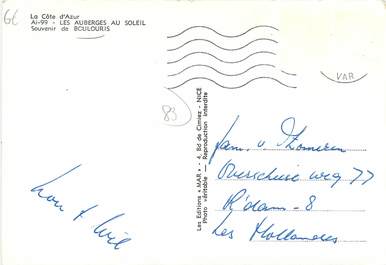 La Côte d'Azur
Ai-99 - LES AUBERGES AU SOLEIL
Souvenir de BOULOURIS
VAR
83
Les Editions « MAR » - 4, Bd de Cimiez - NICE
Photo véritable — Reproduction interdite
fam. v. Zomeren
Overschiese weg 77
R'dam - 8
Les Hollandes